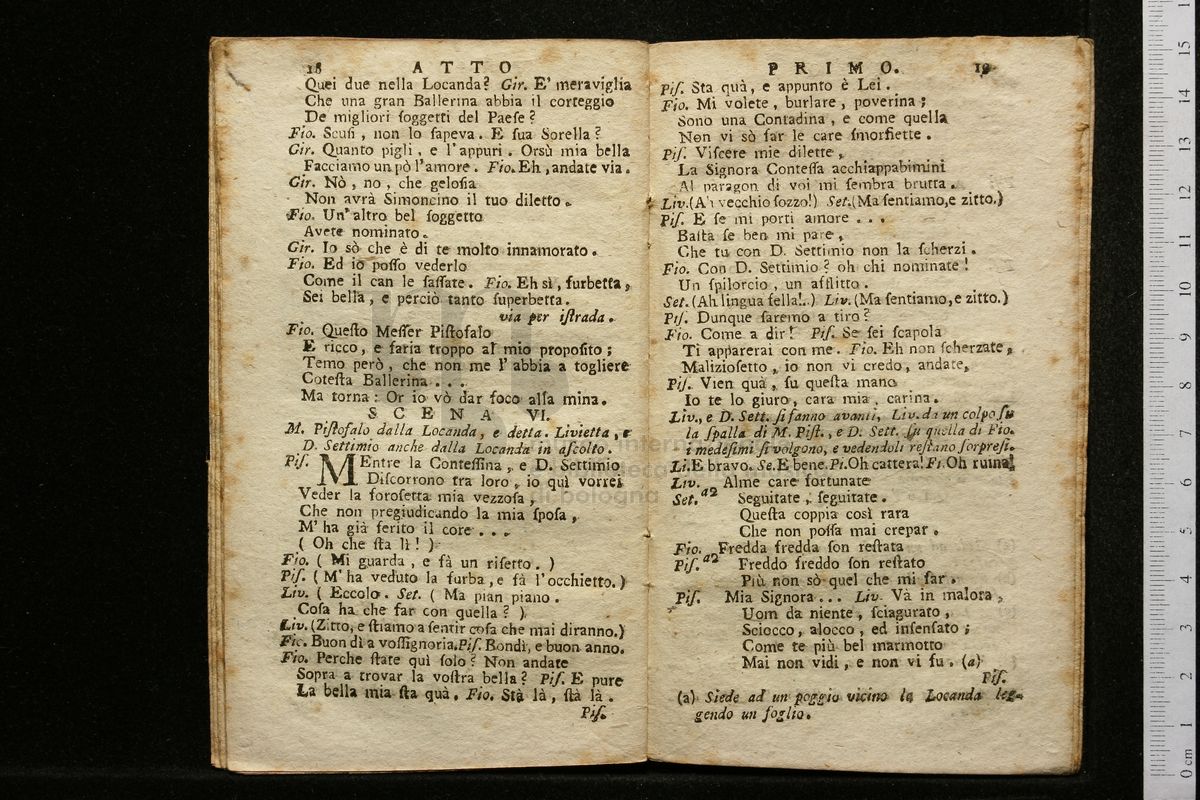 18 ATTO
Quei due nella Locanda? Gir. E' meraviglia
Che una gran Ballerina abbia il corteggio
De migliori soggetti del Paese?
Fio. Scusi, non lo sapeva. E sua Sorella?
Gir. Quanto pigli, e l'appuri. Orsù mia bella
Facciamo un pò l'amore. Fio. Eh, andate via.
Gir. Nò, no, che gelosia
Non avrà Simoncino il tuo diletto.
Fio. Un'altro bel soggetto
Avete nominato.
Gir. Io sò che è di te molto innamorato.
Fio. Ed io posso vederlo
Come il can le sassate. Fio. Eh sì, furbetta,
Sei bella, e perciò tanto superbetta.
via per istrada.
Fio. Questo Messer Pistofalo
E ricco, e faria troppo al mio proposito;
Temo però, che non me l'abbia a togliere
Cotesta Ballerina...
Ma torna: Or io vò dar foco alla mina.
SCENA VI.
M. Pistofalo dalla Locanda, e detta. Livietta, e
D. Settimio anche dalla Locanda in ascolto.
Pis. MEntre la Contessina, e D. Settimio
Discorrono tra loro, io quì vorrei
Veder la forosetta mia vezzosa,
Che non pregiudicando la mia sposa,
M'ha già ferito il core...
(Oh che sta lì!)
Fio. (Mi guarda, e fà un risetto.)
Pis. (M'ha veduto la furba, e fà l'occhietto.)
Liv. (Eccolo. Set. (Ma pian piano.
Cosa ha che far con quella?)
Liv. (Zitto, e stiamo a sentir cosa che mai diranno.)
Fio. Buon dì a vossignoria. Pis. Bondì, e buon anno.
Fio. Perche state quì solo? Non andate
Sopra a trovar la vostra bella? Pis. E pure
La bella mia sta quà. Fio. Stà là, stà là.
Pis.
PRIMO. 19
Pis. Sta quà, e appunto è Lei.
Fio. Mi volete, burlare, poverina;
Sono una Contadina, e come quella
Non vi sò far le care smorfiette.
Pis. Viscere mie dilette,
La Signora Contessa acchiappabimini
Al paragon di voi mi sembra brutta.
Liv. (Ah vecchio sozzo!) Set. (Ma sentiamo, e zitto.)
Pis. E se mi porti amore...
Basta se ben mi pare,
Che tu con D. Settimio non la scherzi.
Fio. Con D. Settimio? oh chi nominate!
Un spilorcio, un afflitto.
Set. (Ah lingua fella!..) Liv. (Ma sentiamo, e zitto.)
Pis. Dunque faremo a tiro?
Fio. Come a dir! Pis. Se sei scapola
Ti apparerai con me. Fio. Eh non scherzate,
Maliziosetto, io non vi credo, andate,
Pis. Vien quà, su questa mano
Io te lo giuro, cara mia, carina.
Liv., e D. Sett. si fanno avanti, Liv. da un colpo su
la spalla di M. Pist., e D. Sett. su quella di Fio.
i medesimi si volgono, e vedendoli restano sorpresi.
Li. E bravo. Se. E bene. Pi. Oh cattera! Fi. Oh ruina!
Liv. Alme care fortunate
Set. a2 Seguitate, seguitate.
Questa coppia così rara
Che non possa mai crepar.
Fio. Fredda fredda son restata
Pis. a2 Freddo freddo son restato
Più non sò quel che mi far.
Pis. Mia Signora... Liv. Và in malora,
Uom da niente, sciagurato,
Sciocco, alocco, ed insensato;
Come te più bel marmotto
Mai non vidi, e non vi fu. (a)
Pis.
(a) Siede ad un poggio vicino la Locanda leg-
gendo un foglio.